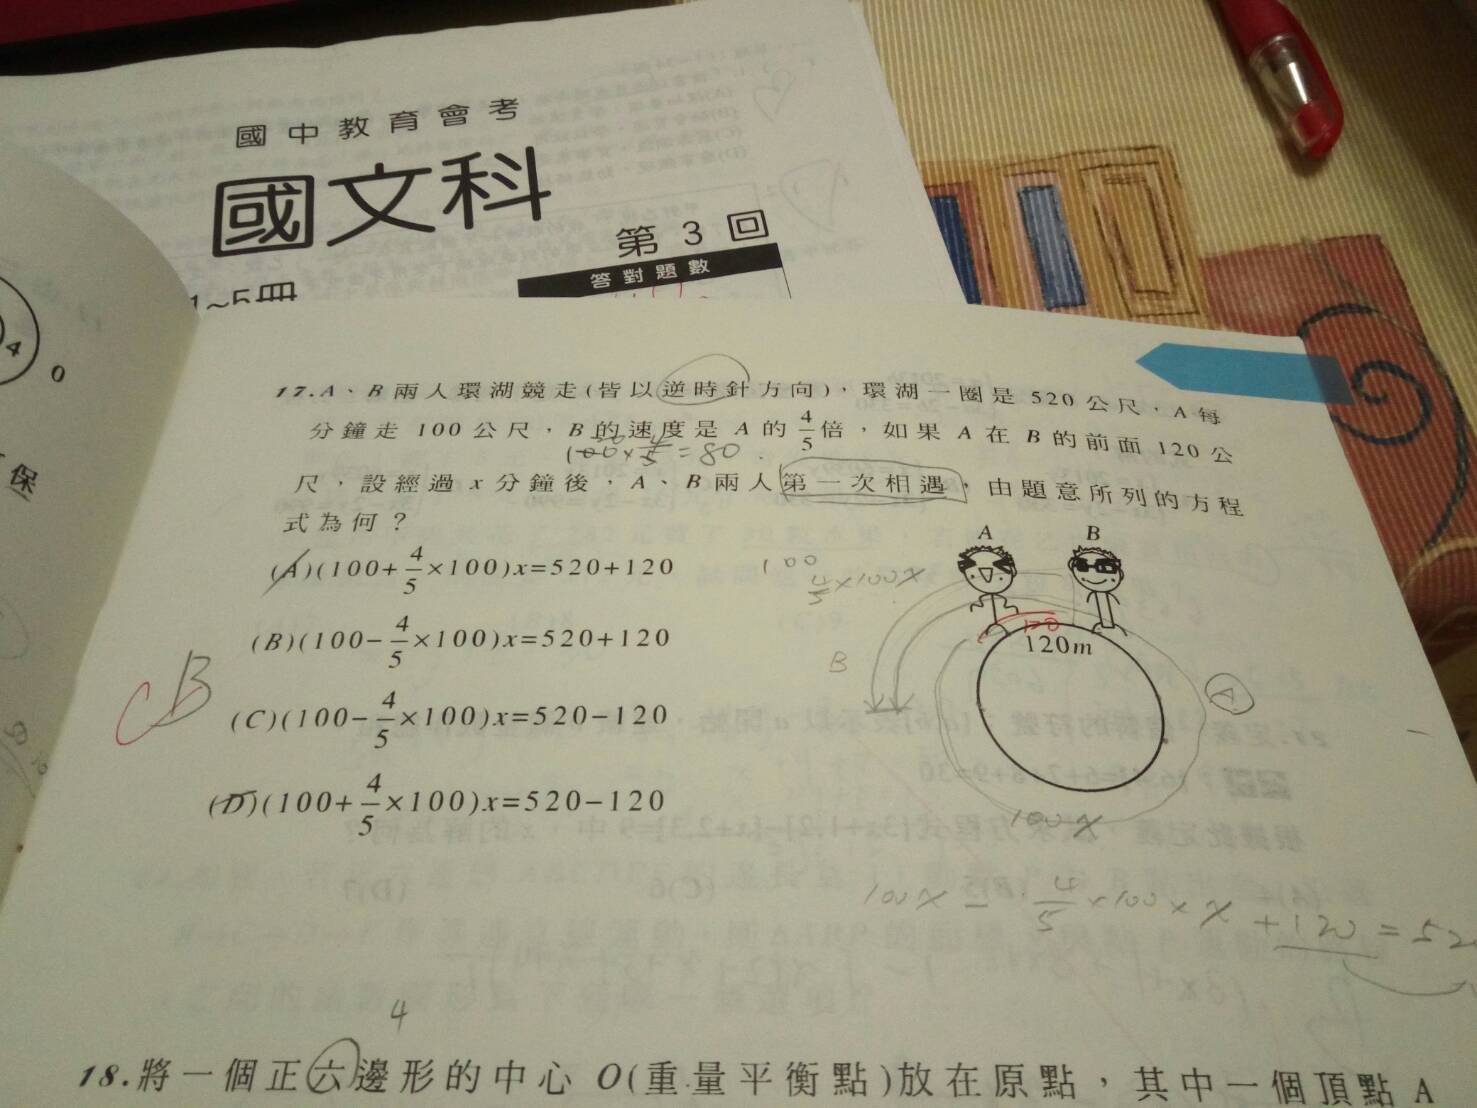 國中教育會考
國文科
第3回
答對題數
1~5冊
4
0
保
17.A、B兩人環湖競走(皆以逆時針方向)，環湖一圈是520公尺，A每
分鐘走100公尺，B的速度是A的4/5倍，如果A在B的前面120公
100×4/5=80
尺，設經過x分鐘後，A、B兩人第一次相遇，由題意所列的方程
式為何？
(A)(100+4/5×100)x=520+120
(B)(100-4/5×100)x=520+120
(C)(100-4/5×100)x=520-120
(D)(100+4/5×100)x=520-120
C B
100
4/5×100x
A B
120
120m
B
A
100x
100x-4/5×100×x+120=520
4
18.將一個正六邊形的中心O(重量平衡點)放在原點，其中一個頂點A